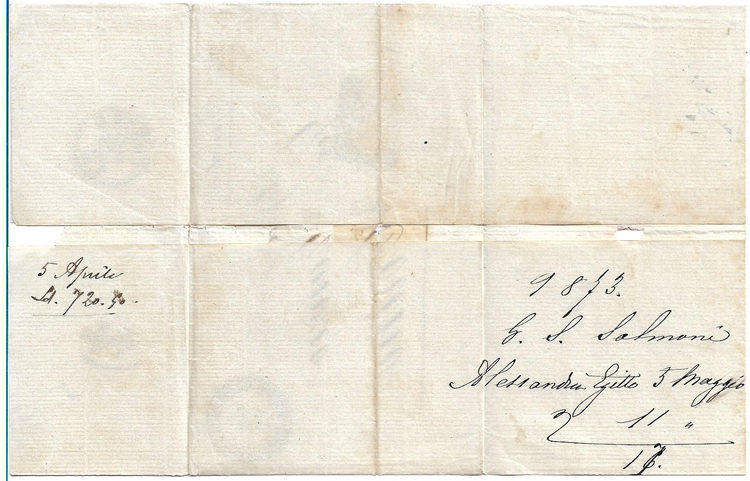 5 Aprile
Ld. 720.50.
1873.
G. S. Salmoni
Alessandria Egitto 5 Maggio
R 11 "
17.